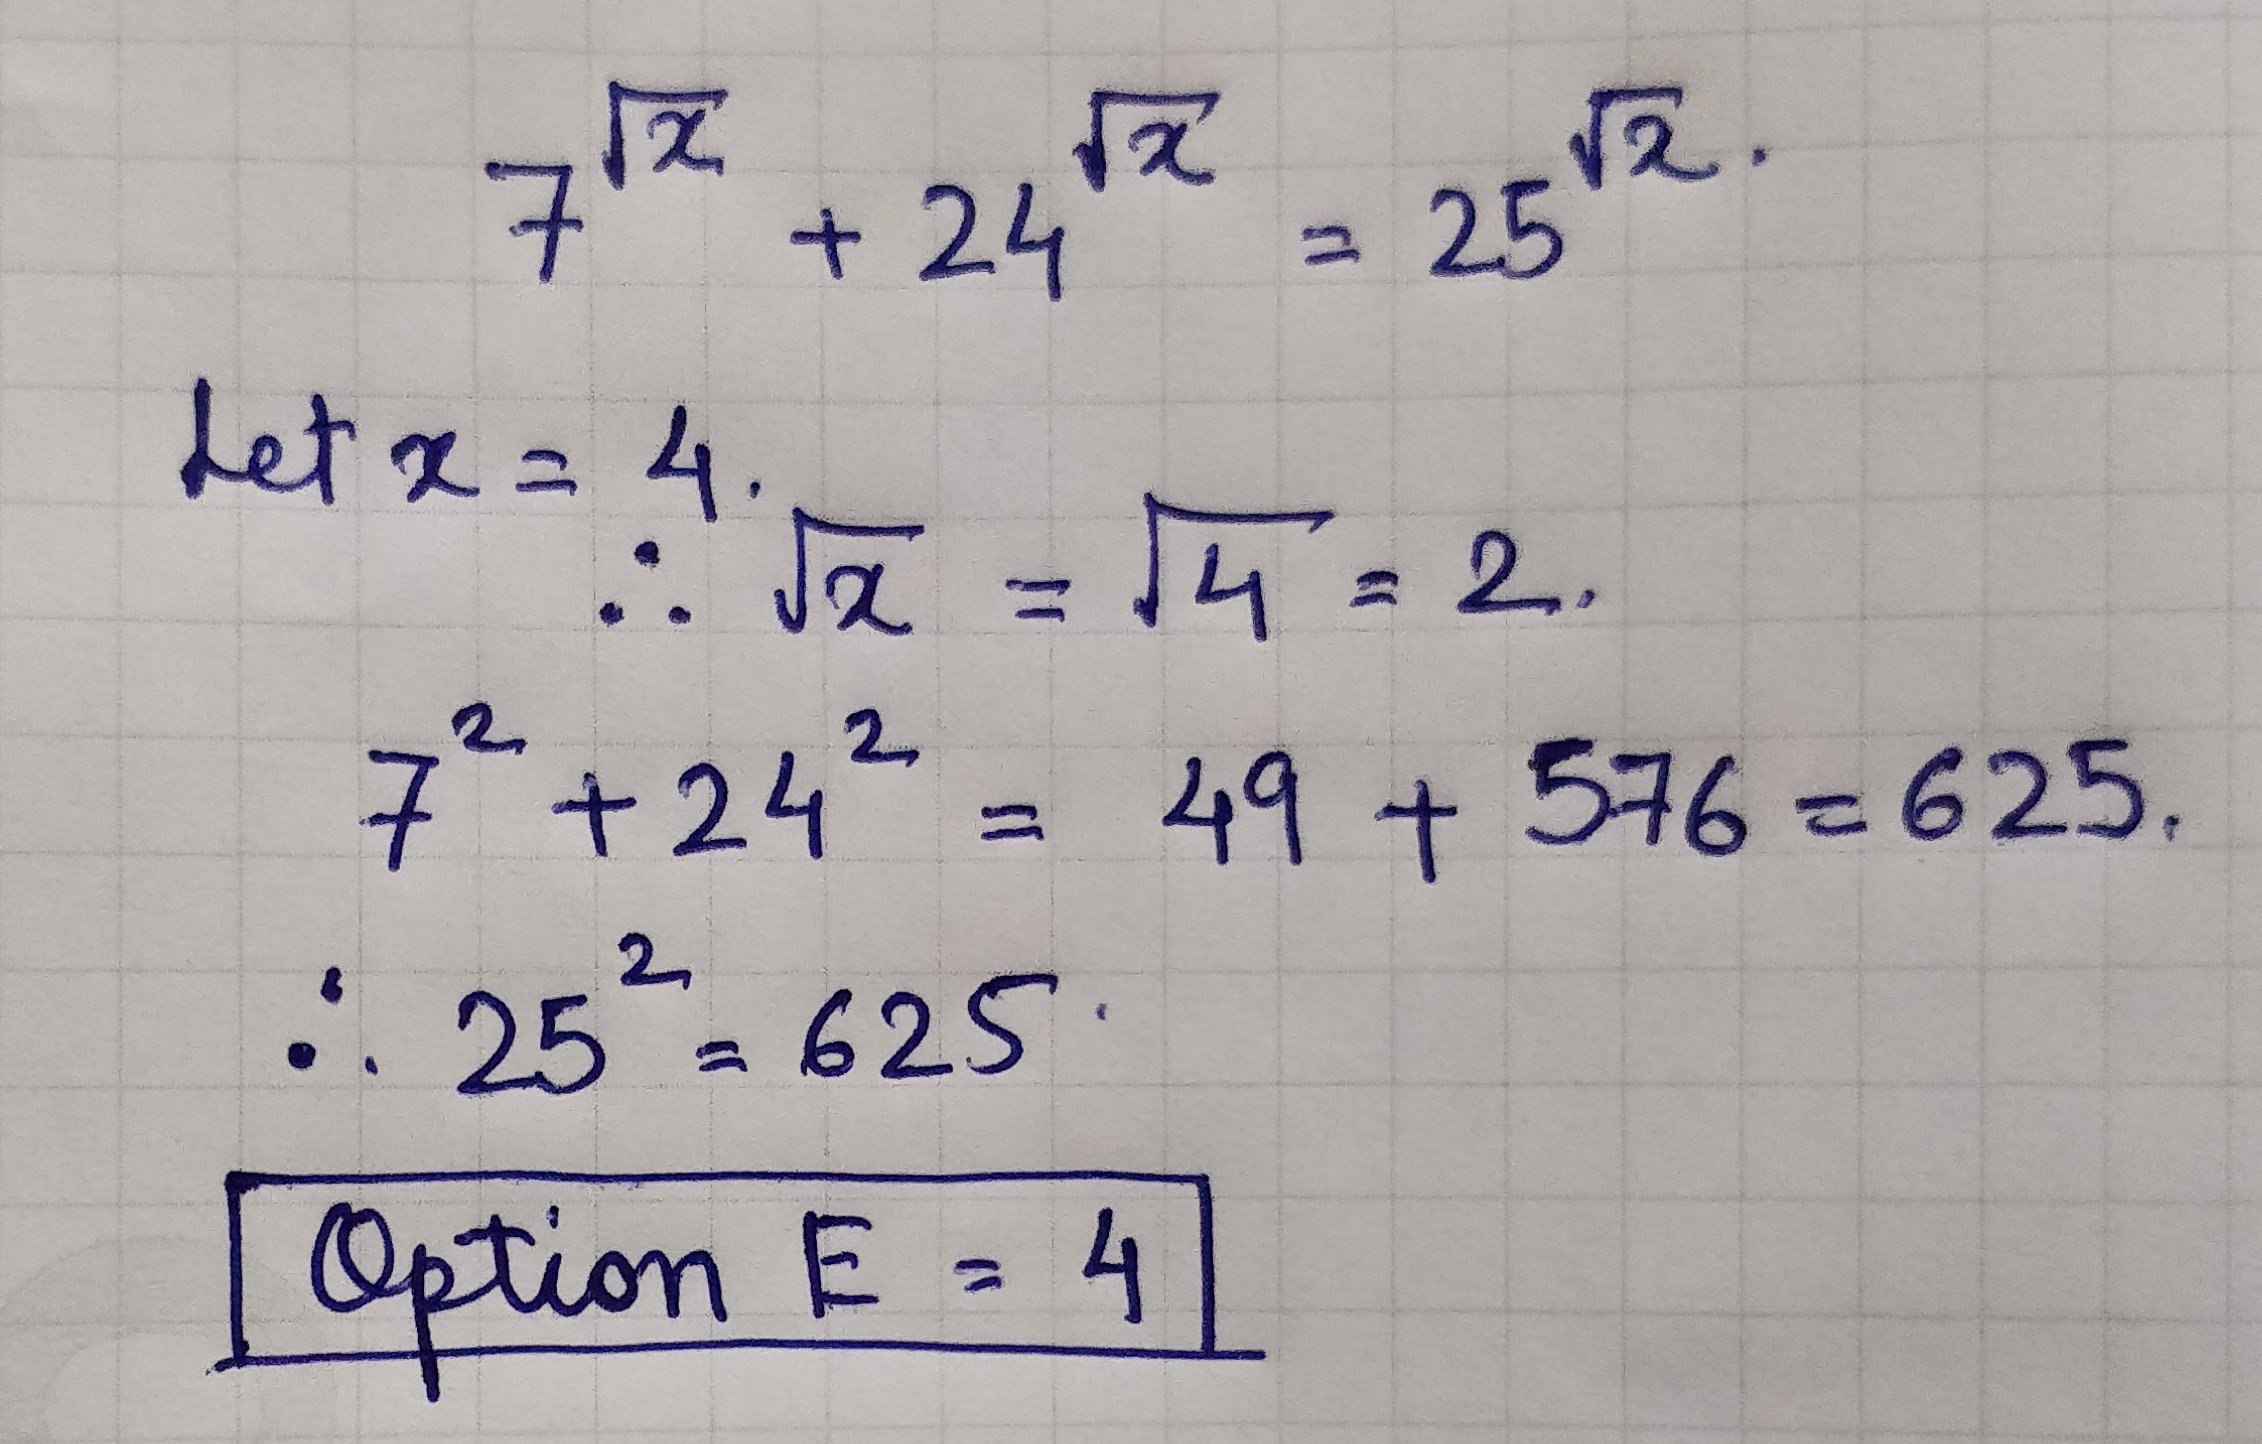 7^√x + 24^√x = 25^√x.
Let x = 4.
∴ √x = √4 = 2.
7² + 24² = 49 + 576 = 625.
∴ 25² = 625.
Option E = 4